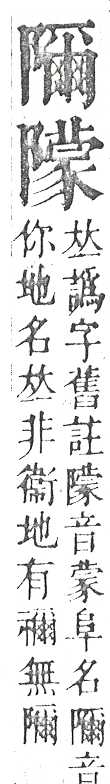 隬
𠀤譌字舊註音蒙阜名隬音
你地名𠀤非衞地有禰無隬